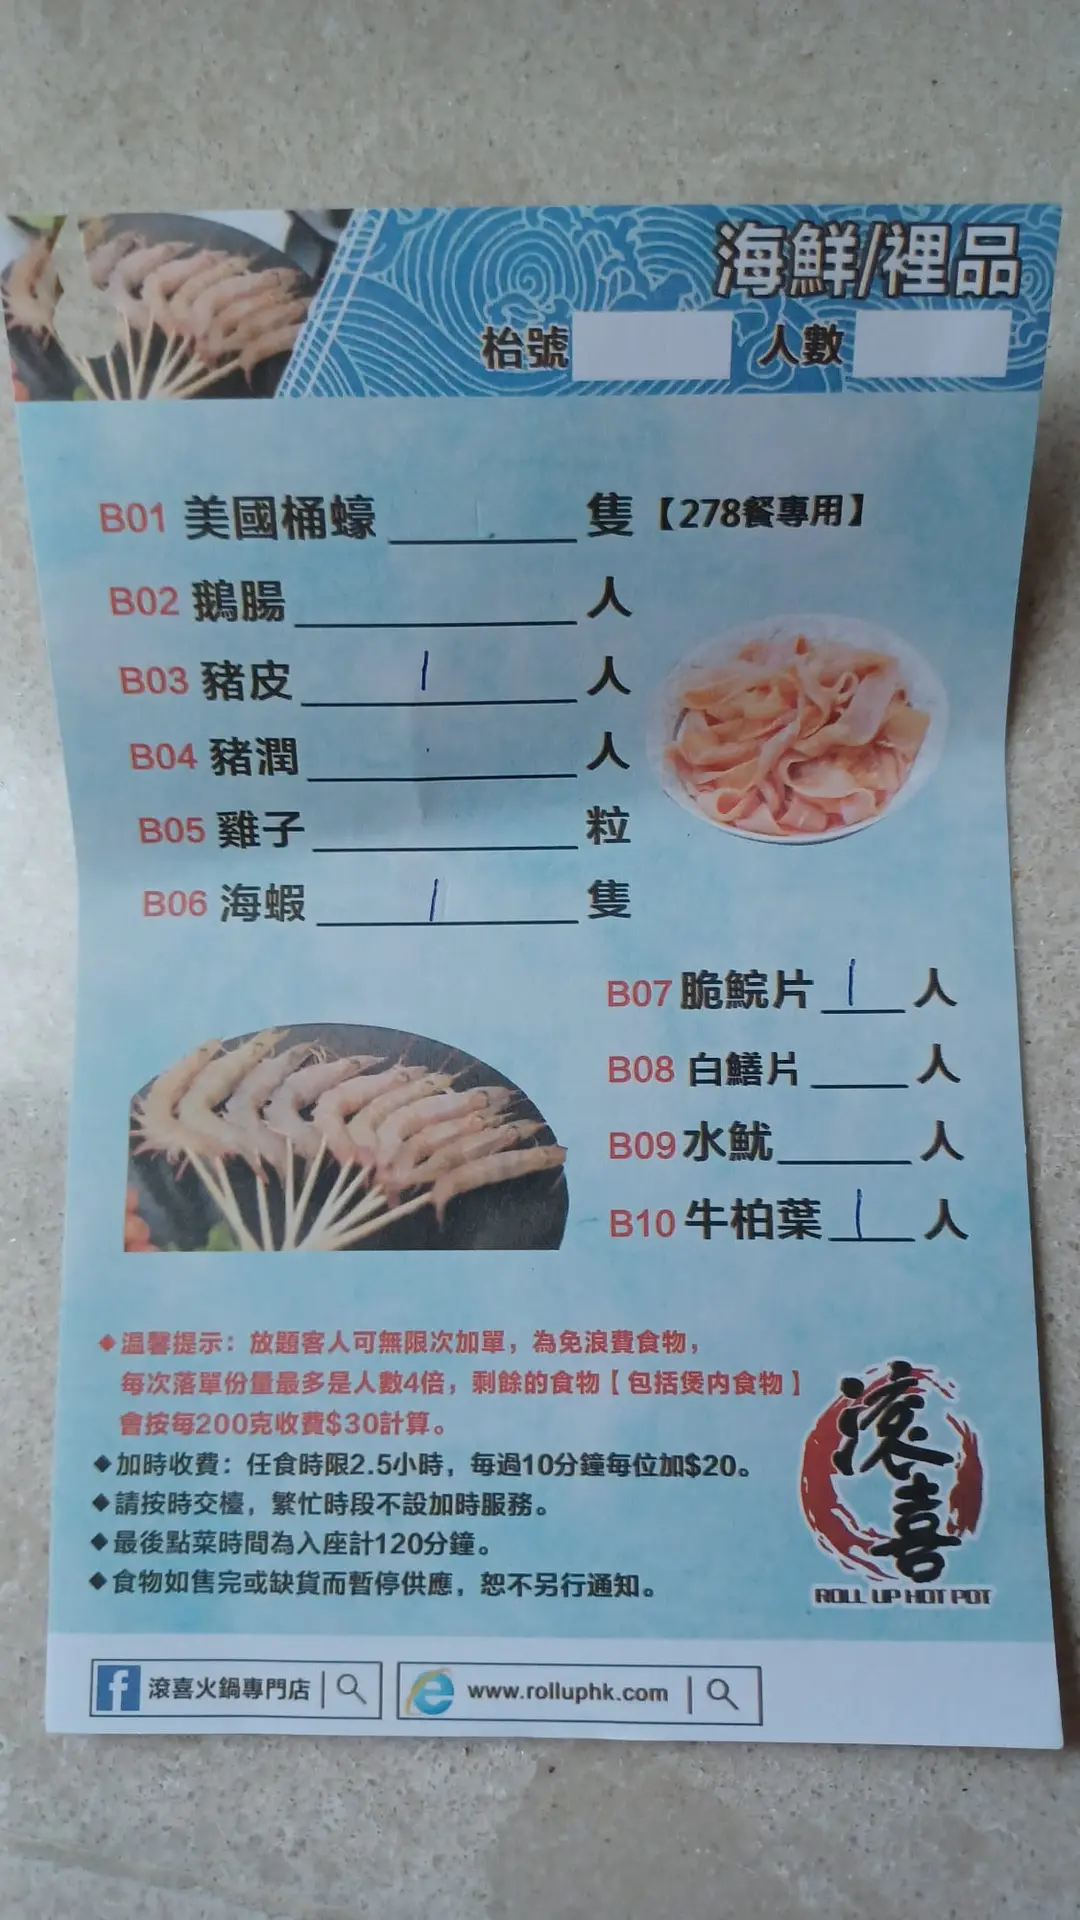 海鮮/裡品
枱號 人數
B01 美國桶蠔 隻【278餐專用】
B02 鵝腸 人
B03 豬皮 1 人
B04 豬潤 人
B05 雞子 粒
B06 海蝦 1 隻
B07 脆鯇片 1 人
B08 白鱔片 人
B09 水魷 人
B10 牛柏葉 1 人
◆温馨提示：放題客人可無限次加單，為免浪費食物，
每次落單份量最多是人數4倍，剩餘的食物【包括煲內食物】
會按每200克收費$30計算。
◆加時收費：任食時限2.5小時，每過10分鐘每位加$20。
◆請按時交檯，繁忙時段不設加時服務。
◆最後點菜時間為入座計120分鐘。
◆食物如售完或缺貨而暫停供應，恕不另行通知。
滾喜
ROLL UP HOT POT
f 滾喜火鍋專門店
www.rolluphk.com